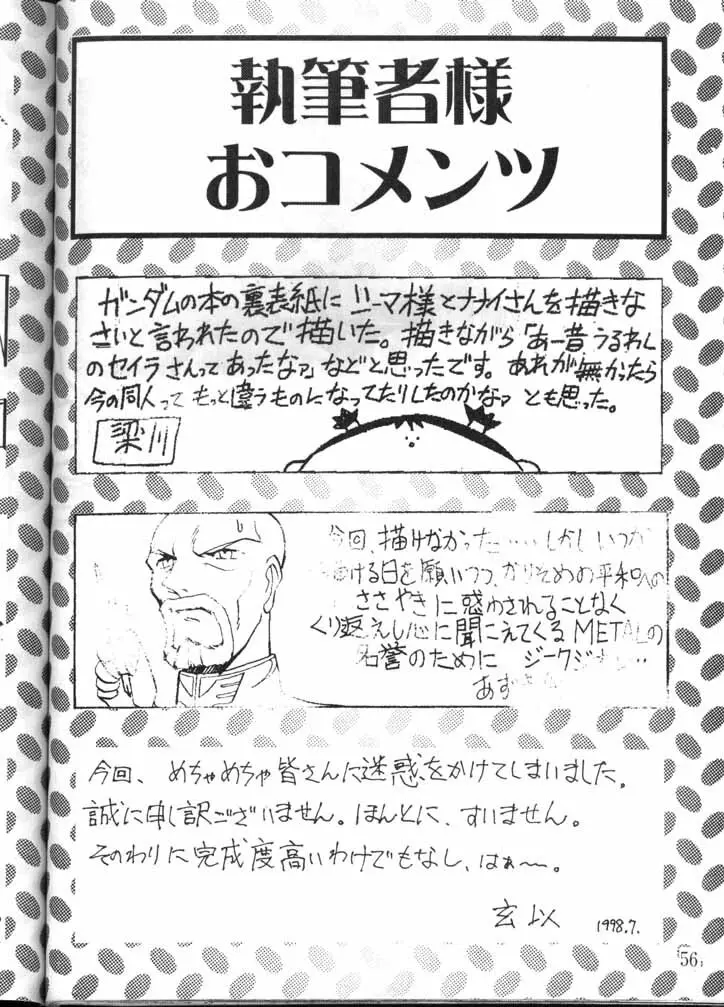 執筆者様
おコメンツ
ガンダムの本の裏表紙にシーマ様とナナイさんを描きな
さいと言われたので描いた。描きながら「あー昔うるわし
のセイラさんってあったなァ」などと思ったです。あれが無かったら
今の同人って もっと違うものになってたりしたのかなァ とも思った。
梁川
今回、描けなかった……しかし いつか
描ける日を願いつつ、かりそめの平和への
ささやきに惑わされることなく
くり返えし心に聞こえてくるMETALの
名誉のために ジークジオン…
あず
今回、めちゃめちゃ皆さんに迷惑をかけてしまいました。
誠に申し訳ございません。ほんとに、すいません。
そのわりに完成度高いわけでもなし、はぁ〜。
玄以 1998.7.
56